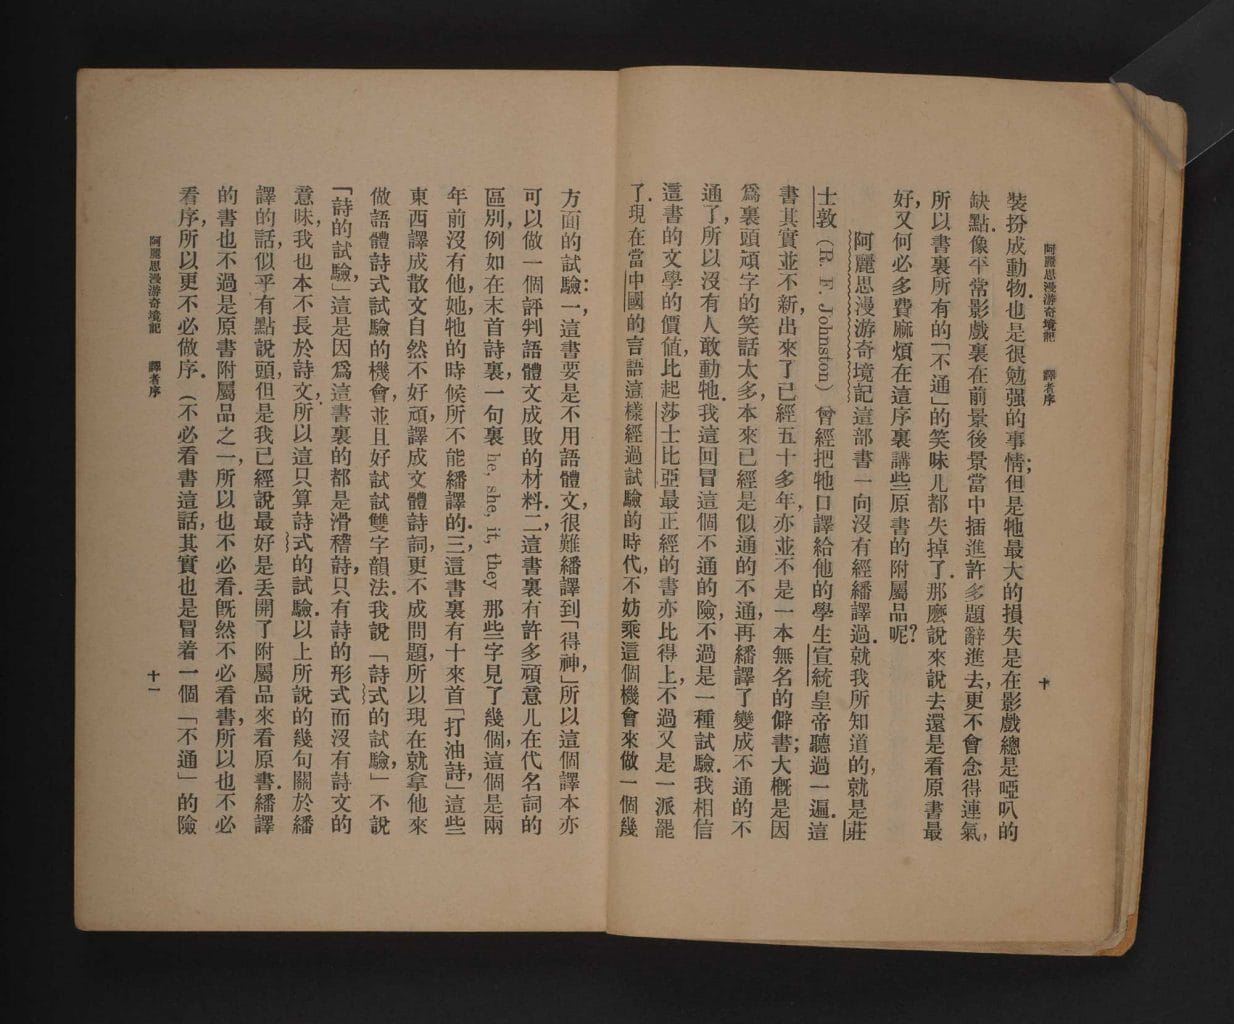 阿麗思漫游奇境記　譯者序
十
裝扮成動物,也是很勉强的事情;但是牠最大的損失是在影戲總是啞叭的
缺點.像平常影戲裏在前景後景當中插進許多題辭進去,更不會念得連氣,
所以書裏所有的「不通」的笑味儿都失掉了.那麽說來說去還是看原書最
好,又何必多費麻煩在這序裏講些原書的附屬品呢?
阿麗思漫游奇境記這部書一向沒有經繙譯過.就我所知道的,就是莊
士敦(R. F. Johnston)曾經把牠口譯給他的學生宣統皇帝聽過一遍.這
書其實並不新,出來了已經五十多年,亦並不是一本無名的僻書;大概是因
爲裏頭頑字的笑話太多,本來已經是似通的不通,再繙譯了變成不通的不
通了,所以沒有人敢動牠.我這回冒這個不通的險,不過是一種試驗.我相信
這書的文學的價值,比起莎士比亞最正經的書亦比得上,不過又是一派罷
了.現在當中國的言語這樣經過試驗的時代,不妨乘這個機會來做一個幾
方面的試驗:一,這書要是不用語體文,很難繙譯到「得神,」所以這個譯本亦
可以做一個評判語體文成敗的材料.二,這書裏有許多頑意儿在代名詞的
區別,例如在末首詩裏,一句裏 he, she, it, they 那些字見了幾個,這個是兩
年前沒有他,她牠的時候所不能繙譯的.三,這書裏有十來首「打油詩,」這些
東西譯成散文自然不好頑,譯成文體詩詞,更不成問題,所以現在就拿他來
做語體詩式試驗的機會,並且好試試雙字韻法.我說「詩式的試驗,」不說
「詩的試驗,」這是因爲這書裏的都是滑稽詩,只有詩的形式而沒有詩文的
意味,我也本不長於詩文,所以這只算詩式的試驗.以上所說的幾句關於繙
譯的話,似乎有點說頭,但是我已經說最好是丟開了附屬品來看原書.繙譯
的書也不過是原書附屬品之一,所以也不必看.旣然不必看書,所以也不必
看序,所以更不必做序.(不必看書這話,其實也是冒着一個「不通」的險
阿麗思漫游奇境記　譯者序
十一